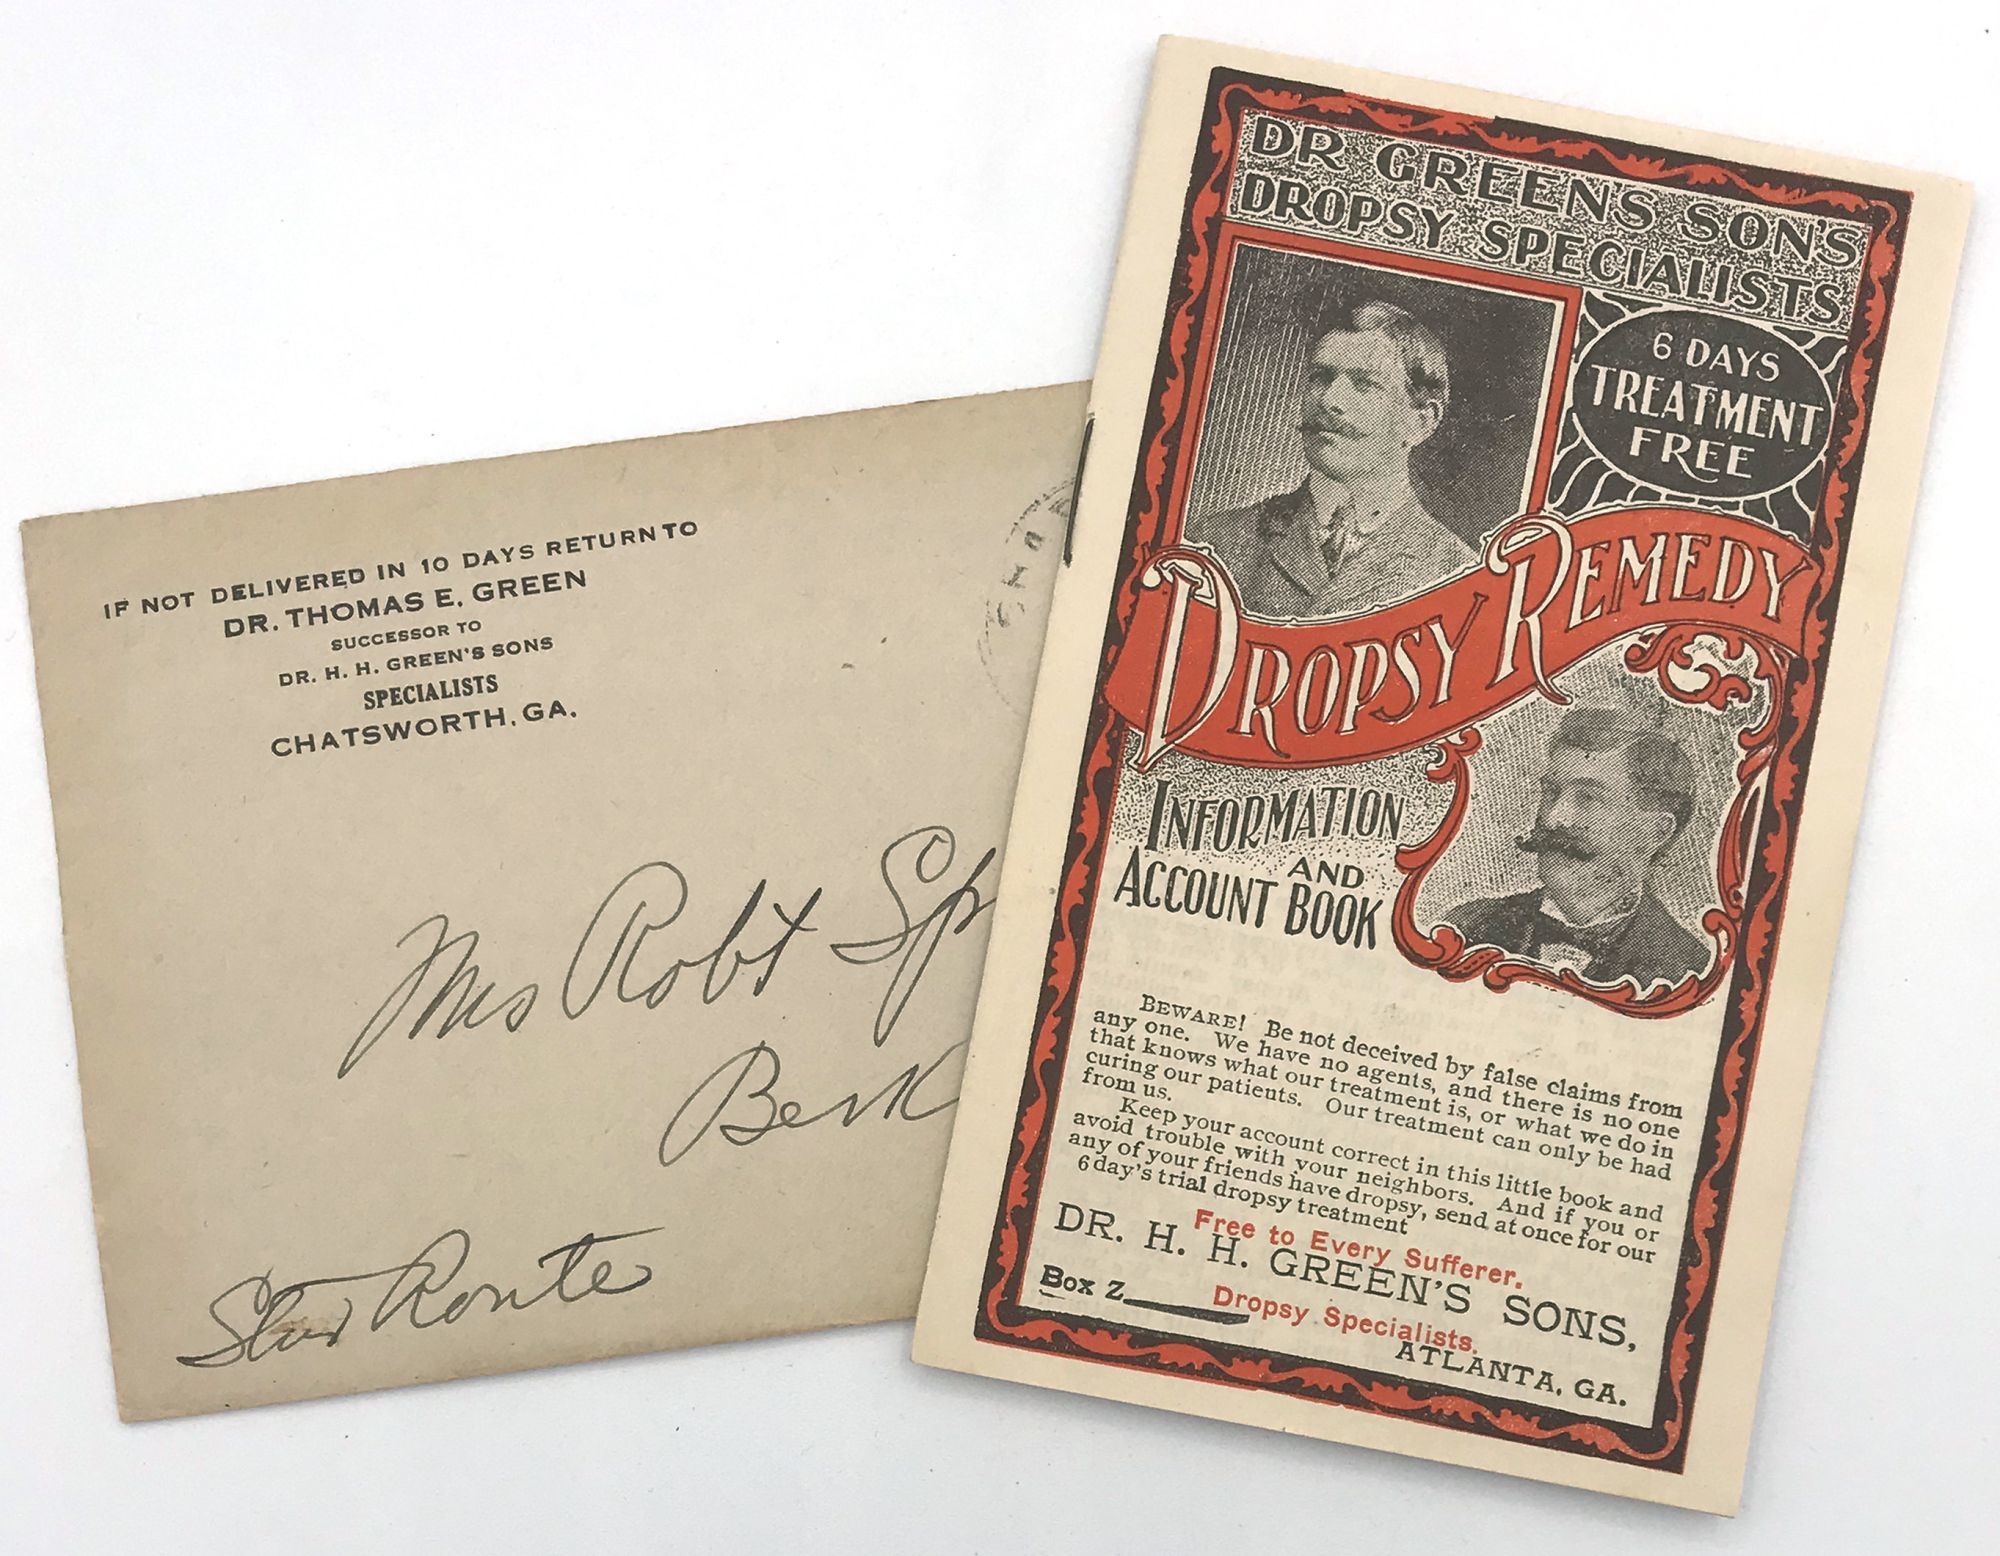 IF NOT DELIVERED IN 10 DAYS RETURN TO
DR. THOMAS E. GREEN
SUCCESSOR TO
DR. H. H. GREEN'S SONS
SPECIALISTS
CHATSWORTH, GA.
Mrs Robt Sp
Berk
Star Route
DR GREEN'S SON'S
DROPSY SPECIALISTS
6 DAYS
TREATMENT
FREE
DROPSY REMEDY
INFORMATION
AND
ACCOUNT BOOK
BEWARE! Be not deceived by false claims from
any one. We have no agents, and there is no one
that knows what our treatment is, or what we do in
curing our patients. Our treatment can only be had
from us.
Keep your account correct in this little book and
avoid trouble with your neighbors. And if you or
any of your friends have dropsy, send at once for our
6 day's trial dropsy treatment
Free to Every Sufferer.
DR. H. H. GREEN'S SONS,
Box Z
Dropsy Specialists.
ATLANTA, GA.